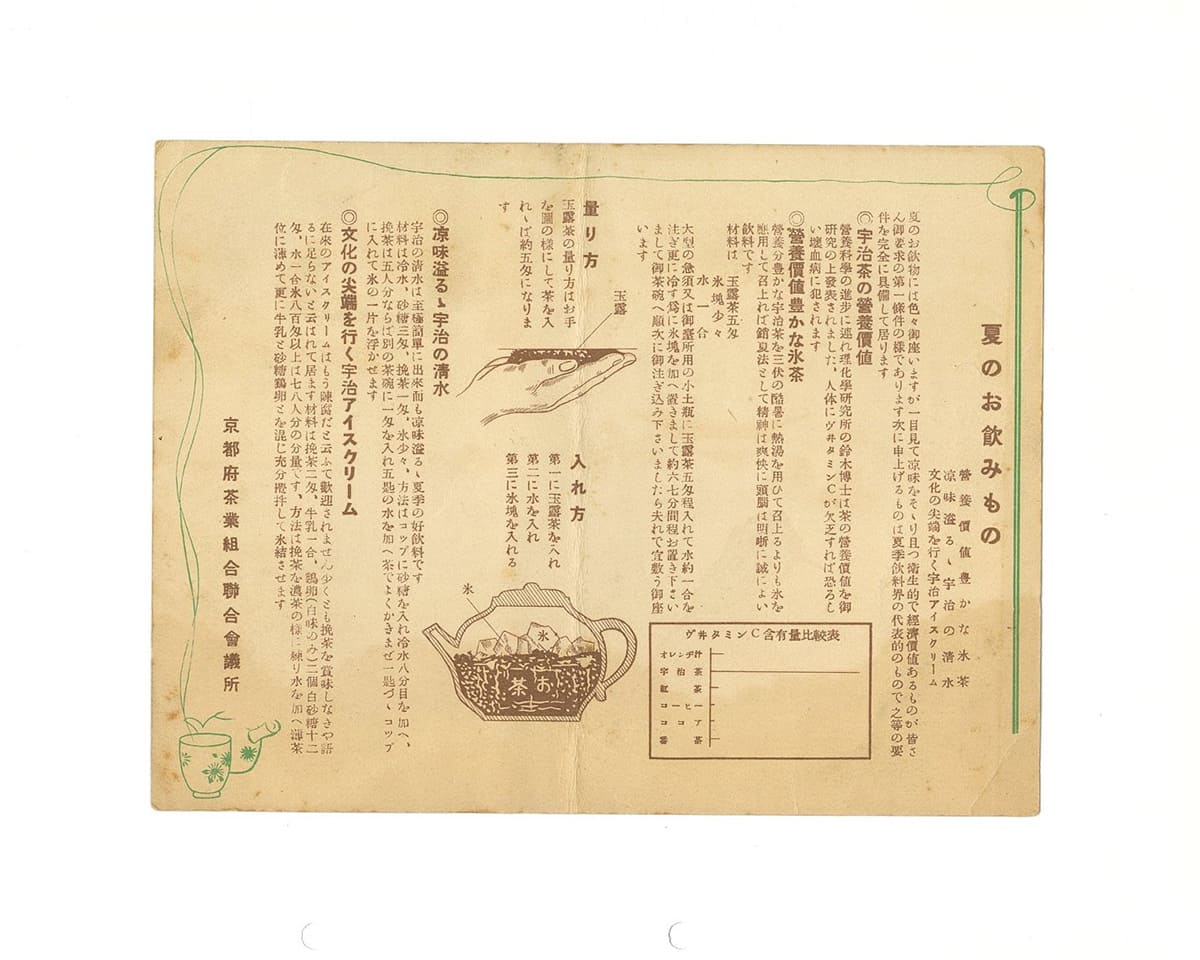 夏のお飮みもの
營養價値豊かな氷茶
凉味溢るゝ宇治の清水
文化の尖端を行く宇治アイスクリーム
夏のお飲物には色々御座いますが一目見て凉味をそゝり且つ衞生的で經濟價値あるものが皆さ
ん御要求の第一條件の樣であります次に申上げるものは夏季飮料界の代表的のもので之等の要
件を完全に具備して居ります
◎宇治茶の營養價値
營養科學の進步に連れ理化學硏究所の鈴木博士は茶の營養價値を御
硏究の上發表されました、人体にヴヰタミンCが欠乏すれば恐ろし
い壞血病に犯されます
◎營養價値豊かな氷茶
營養分豊かな宇治茶を三伏の酷暑に熱湯を用ひて召上るよりも氷を
應用して召上れば銷夏法として精神は爽快に頭腦は明晰に誠によい
飮料です
材料は 玉露茶五匁
氷塊少々
水一合
大型の急須又は御臺所用の小土瓶に玉露茶五匁程入れて水約一合を
注ぎ更に冷す爲に氷塊を加へ置きまして約六七分間程お置き下さい
まして御茶碗へ順次に御注ぎ込み下さいましたら夫れで宜敷う御座
います
ヴヰタミンC含有量比較表
オレンヂ汁
宇治茶
紅茶
コーヒー
ココア
番茶
量り方
玉露茶の量り方はお手
を圖の樣にして茶を入
れゝば約五匁になりま
す
玉露
入れ方
第一に玉露茶を入れ
第二に水を入れ
第三に氷塊を入れる
氷
氷
お茶
◎凉味溢るゝ宇治の清水
宇治の清水は至極簡單に出來而も凉味溢るゝ夏季の好飮料です
材料は冷水、砂糖三匁、挽茶一匁、氷少々、方法はコップに砂糖を入れ冷水八分目を加へ、
挽茶は五人分ならば別の茶碗に一匁を入れ五匙の水を加へ茶でよくかきまぜ一匙づゝコップ
に入れて氷の一片を浮かせます
◎文化の尖端を行く宇治アイスクリーム
在來のアイスクリームはもう陳腐だと云ふて歡迎されません少くとも挽茶を賞味しなきや語
るに足らないと云はれて居ます材料は挽茶二匁、牛乳一合、鷄卵(白味のみ)二個白砂糖十二
匁、水一合氷八百匁以上は七八人分の分量です、方法は挽茶を濃茶の樣に練り水を加へ薄茶
位に薄めて更に牛乳と砂糖鷄卵とを混じ充分攪拌して氷結させます
京都府茶業組合聯合會議所